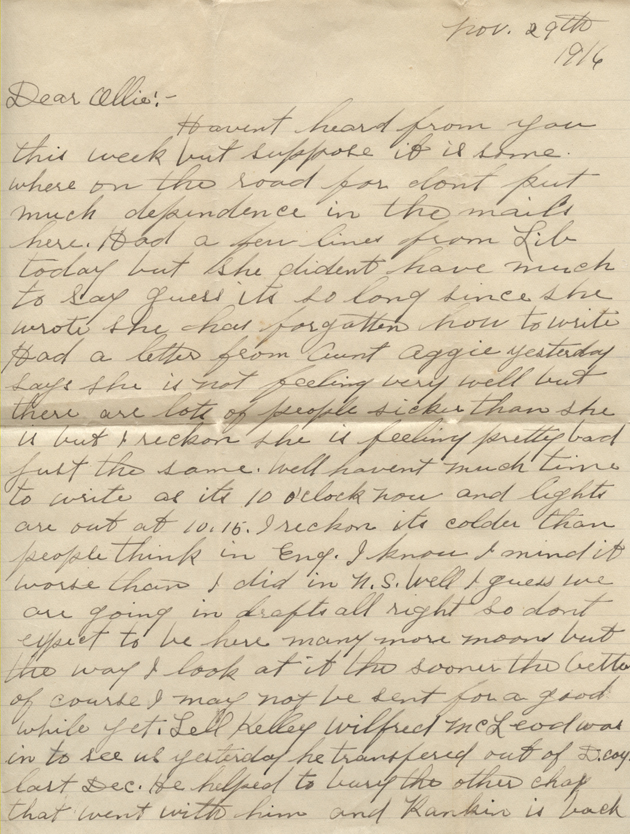 Nov. 29th
1916
Dear Ollie:-
Havent heard from you
this week but suppose it is some
where on the road for dont put
much dependence in the mails
here. Had a few lines from Lib
today but she dident have much
to say guess its so long since she
wrote she has forgotten how to write
Had a letter from Aunt Aggie yesterday
says she is not feeling very well but
there are lots of people sicker than she
is but I reckon she is feeling pretty bad
just the same. Well havent much time
to write as its 10 o'clock now and lights
are out at 10.15. I reckon its colder than
people think in Eng. I know I mind it
worse than I did in N.S. Well I guess we
are going in drafts all right so dont
expect to be here many more moons but
the way I look at it the sooner the better
of course I may not be sent for a good
while yet. Tell Kelley Wilfred McLeod was
in to see us yesterday he transfered out of D. coy.
last Dec. He helped to bury the other chap
that went with him and Rankin is back